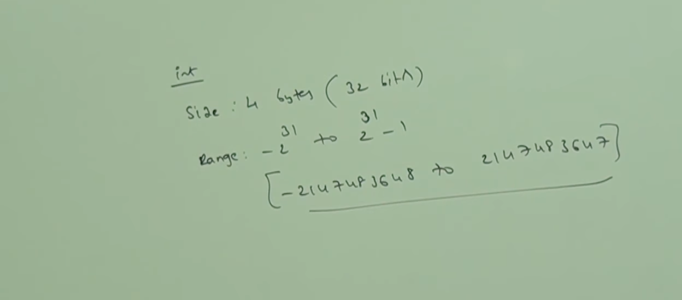 int
Size : 4 bytes (32 bits)
Range: -2^31 to 2^31 - 1
[-2147483648 to 2147483647]